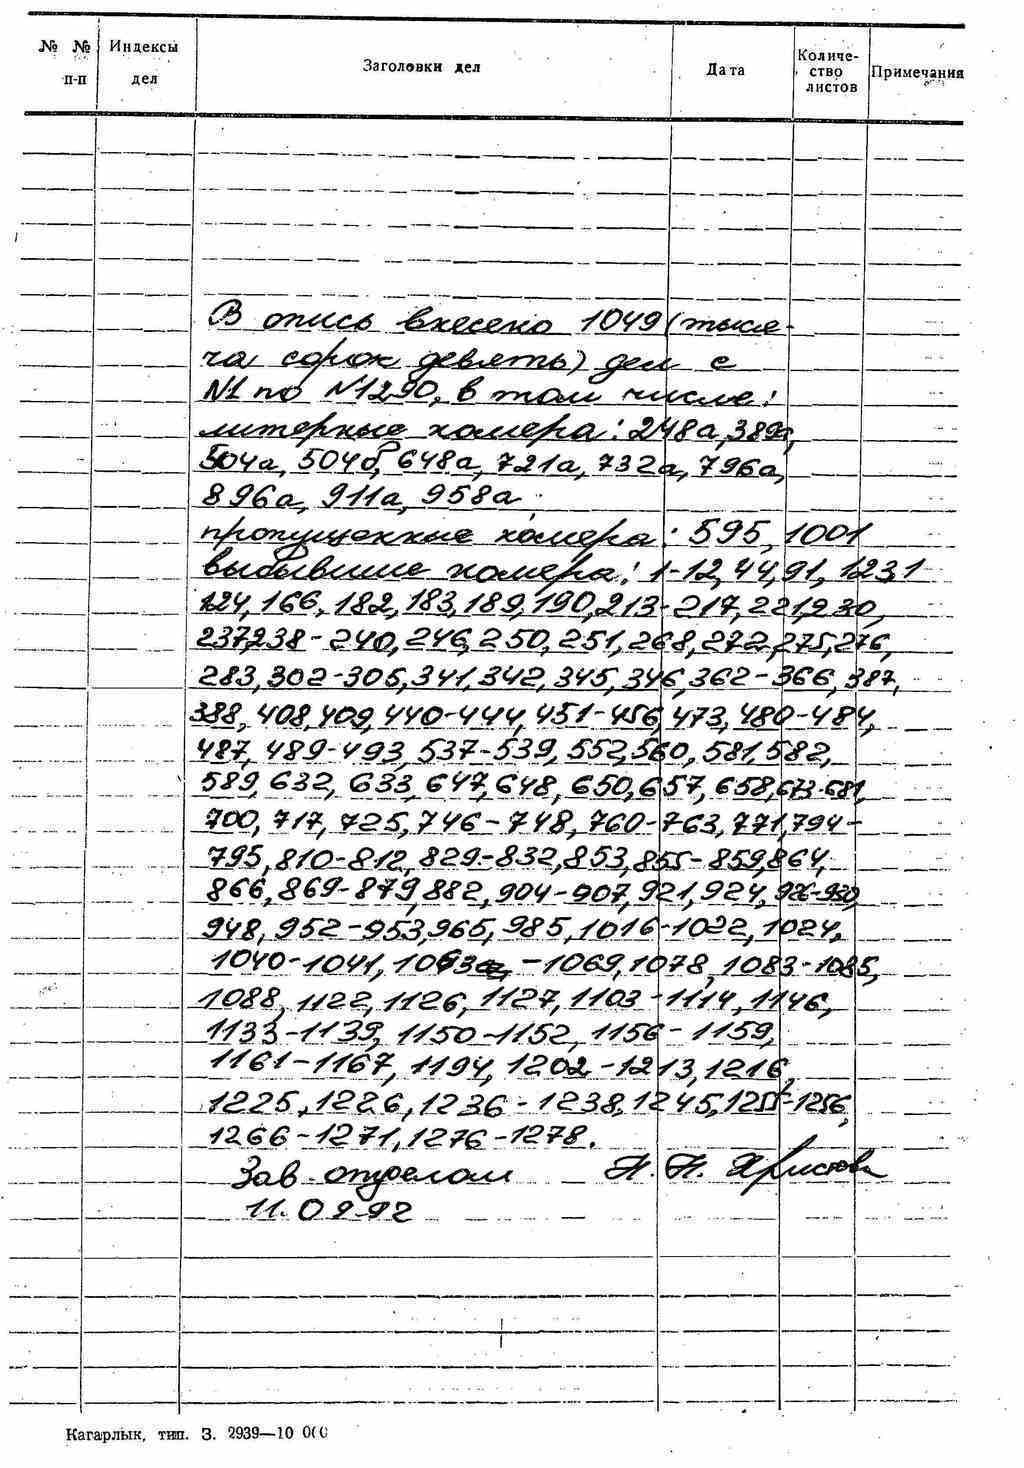 № № п-п
Индексы дел
Заголовки дел
Дата
Количе-
ство
листов
Примечания
В опись внесено 1049 (тыся-
ча сорок девять) дел с
№1 по №1290, в том числе:
литерные номера: 248а, 389а,
504а, 504б, 648а, 721а, 732а, 796а,
896а, 911а, 958а
пропущенные номера: 595, 1001
выбывшие номера: 1-12, 44, 91, 123,
124, 166, 182, 183, 189, 190, 213-217, 221, 230,
237, 238-240, 246, 250, 251, 268, 272, 275, 276,
283, 302-305, 341, 342, 345, 346, 362-366, 387,
388, 408, 409, 440-444, 451-456, 473, 480-484,
487, 489-493, 537-539, 552, 560, 581, 582,
589, 632, 633, 647, 648, 650, 657, 658, 673-681,
700, 717, 725, 746-748, 760-763, 771, 794-
795, 810-812, 829-832, 853, 855-859, 864,
866, 869-879, 882, 904-907, 921, 924, 926-930,
948, 952-953, 965, 985, 1016-1022, 1024,
1040-1041, 1063-1069, 1078, 1083-1085,
1088, 1122, 1126, 1127, 1103-1114, 1146,
1133-1139, 1150-1152, 1156-1159,
1161-1167, 1194, 1202-1213, 1216,
1225, 1226, 1236-1238, 1245, 1251-1256,
1266-1271, 1276-1278.
Зав. отделом Христова
11.09.92
Кагарлык, тип. З. 2939—10 000